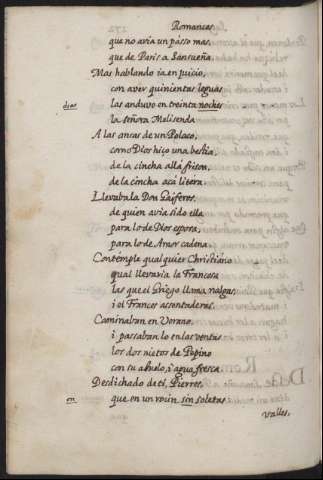 Romances
que no avia un passo mas,
que de Paris a Sansueña,
Mas hablando ia en juicio,
con aver quinientas leguas
dias las anduvo en treinta noches
la señora Melisenda
A las ancas de un Polaco,
como Dios hiço una bestia,
de la cincha allá frison,
de la cincha acá litera.
Llevabala Don Gaiferos,
de quien avia sido ella
para lo de Dios esposa,
para lo de Amor cadena.
Contemple qualquier Christiano
qual llevaria la Francesa
las que el Griego llama nalgas,
i el Frances assentaderas.
Caminaban en Verano,
i passabanlo en las ventas
los dos nietos de Pepino
con su abuelo, i agua fresca.
Desdichado de ti, Pierres,
en que en un rocin sin soletas
Valles,